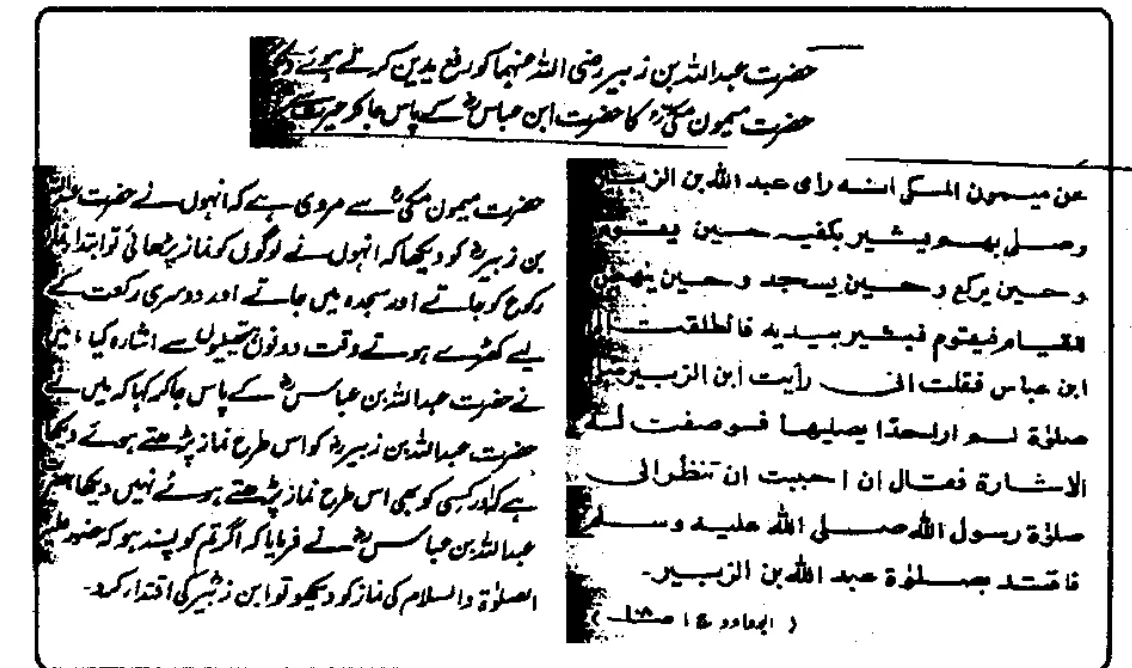 حضرت عبداللہ بن زبیر رضی اللہ عنہما کو رفع یدین کرتے ہوئے دیکھ
حضرت میمون مکیؒ کا حضرت ابن عباسؓ کے پاس جا کر حیرت سے
عن میمون المکی انه رای عبد الله بن الزبیر
وصلی بهم یشیر بکفیه حسین یقوم
وحسین یرکع وحسین یسجد وحسین ینهض
للقیام فیقوم فیشیر بیدیه فانطلقت الی
ابن عباس فقلت انی رأیت ابن الزبیر صلی
صلوٰة لم ار احدا یصلیها فوصفت له
الاشارة فقال ان احببت ان تنظر الی
صلوٰة رسول الله صلی الله علیه وسلم
فاقتد بصلوٰة عبد الله بن الزبیر۔
(ابوداود ج ۱ ص)
حضرت میمون مکیؒ سے مروی ہے کہ انہوں نے حضرت عبداللہ
بن زبیرؓ کو دیکھا کہ انہوں نے لوگوں کو نماز پڑھائی تو ابتداء نماز
رکوع کو جاتے اور سجدہ میں جاتے اور دوسری رکعت کے
لیے کھڑے ہوتے وقت دونوں ہتھیلیوں سے اشارہ کیا، میں
نے حضرت عبداللہ بن عباسؓ کے پاس جا کر کہا کہ میں نے
حضرت عبداللہ بن زبیرؓ کو اس طرح نماز پڑھتے ہوئے دیکھا
ہے کہ اور کسی کو بھی اس طرح نماز پڑھتے ہوئے نہیں دیکھا حضرت
عبداللہ بن عباسؓ نے فرمایا کہ اگر تم کو پسند ہو کہ حضور علیہ
الصلوٰۃ والسلام کی نماز کو دیکھو تو ابن زبیرؓ کی اقتداء کرو۔